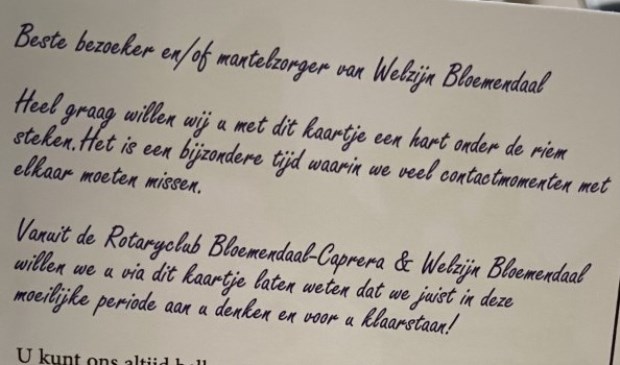 Beste bezoeker en/of mantelzorger van Welzijn Bloemendaal
Heel graag willen wij u met dit kaartje een hart onder de riem
steken. Het is een bijzondere tijd waarin we veel contactmomenten met
elkaar moeten missen.
Vanuit de Rotaryclub Bloemendaal-Caprera & Welzijn Bloemendaal
willen we u via dit kaartje laten weten dat we juist in deze
moeilijke periode aan u denken en voor u klaarstaan!
U kunt ons altijd